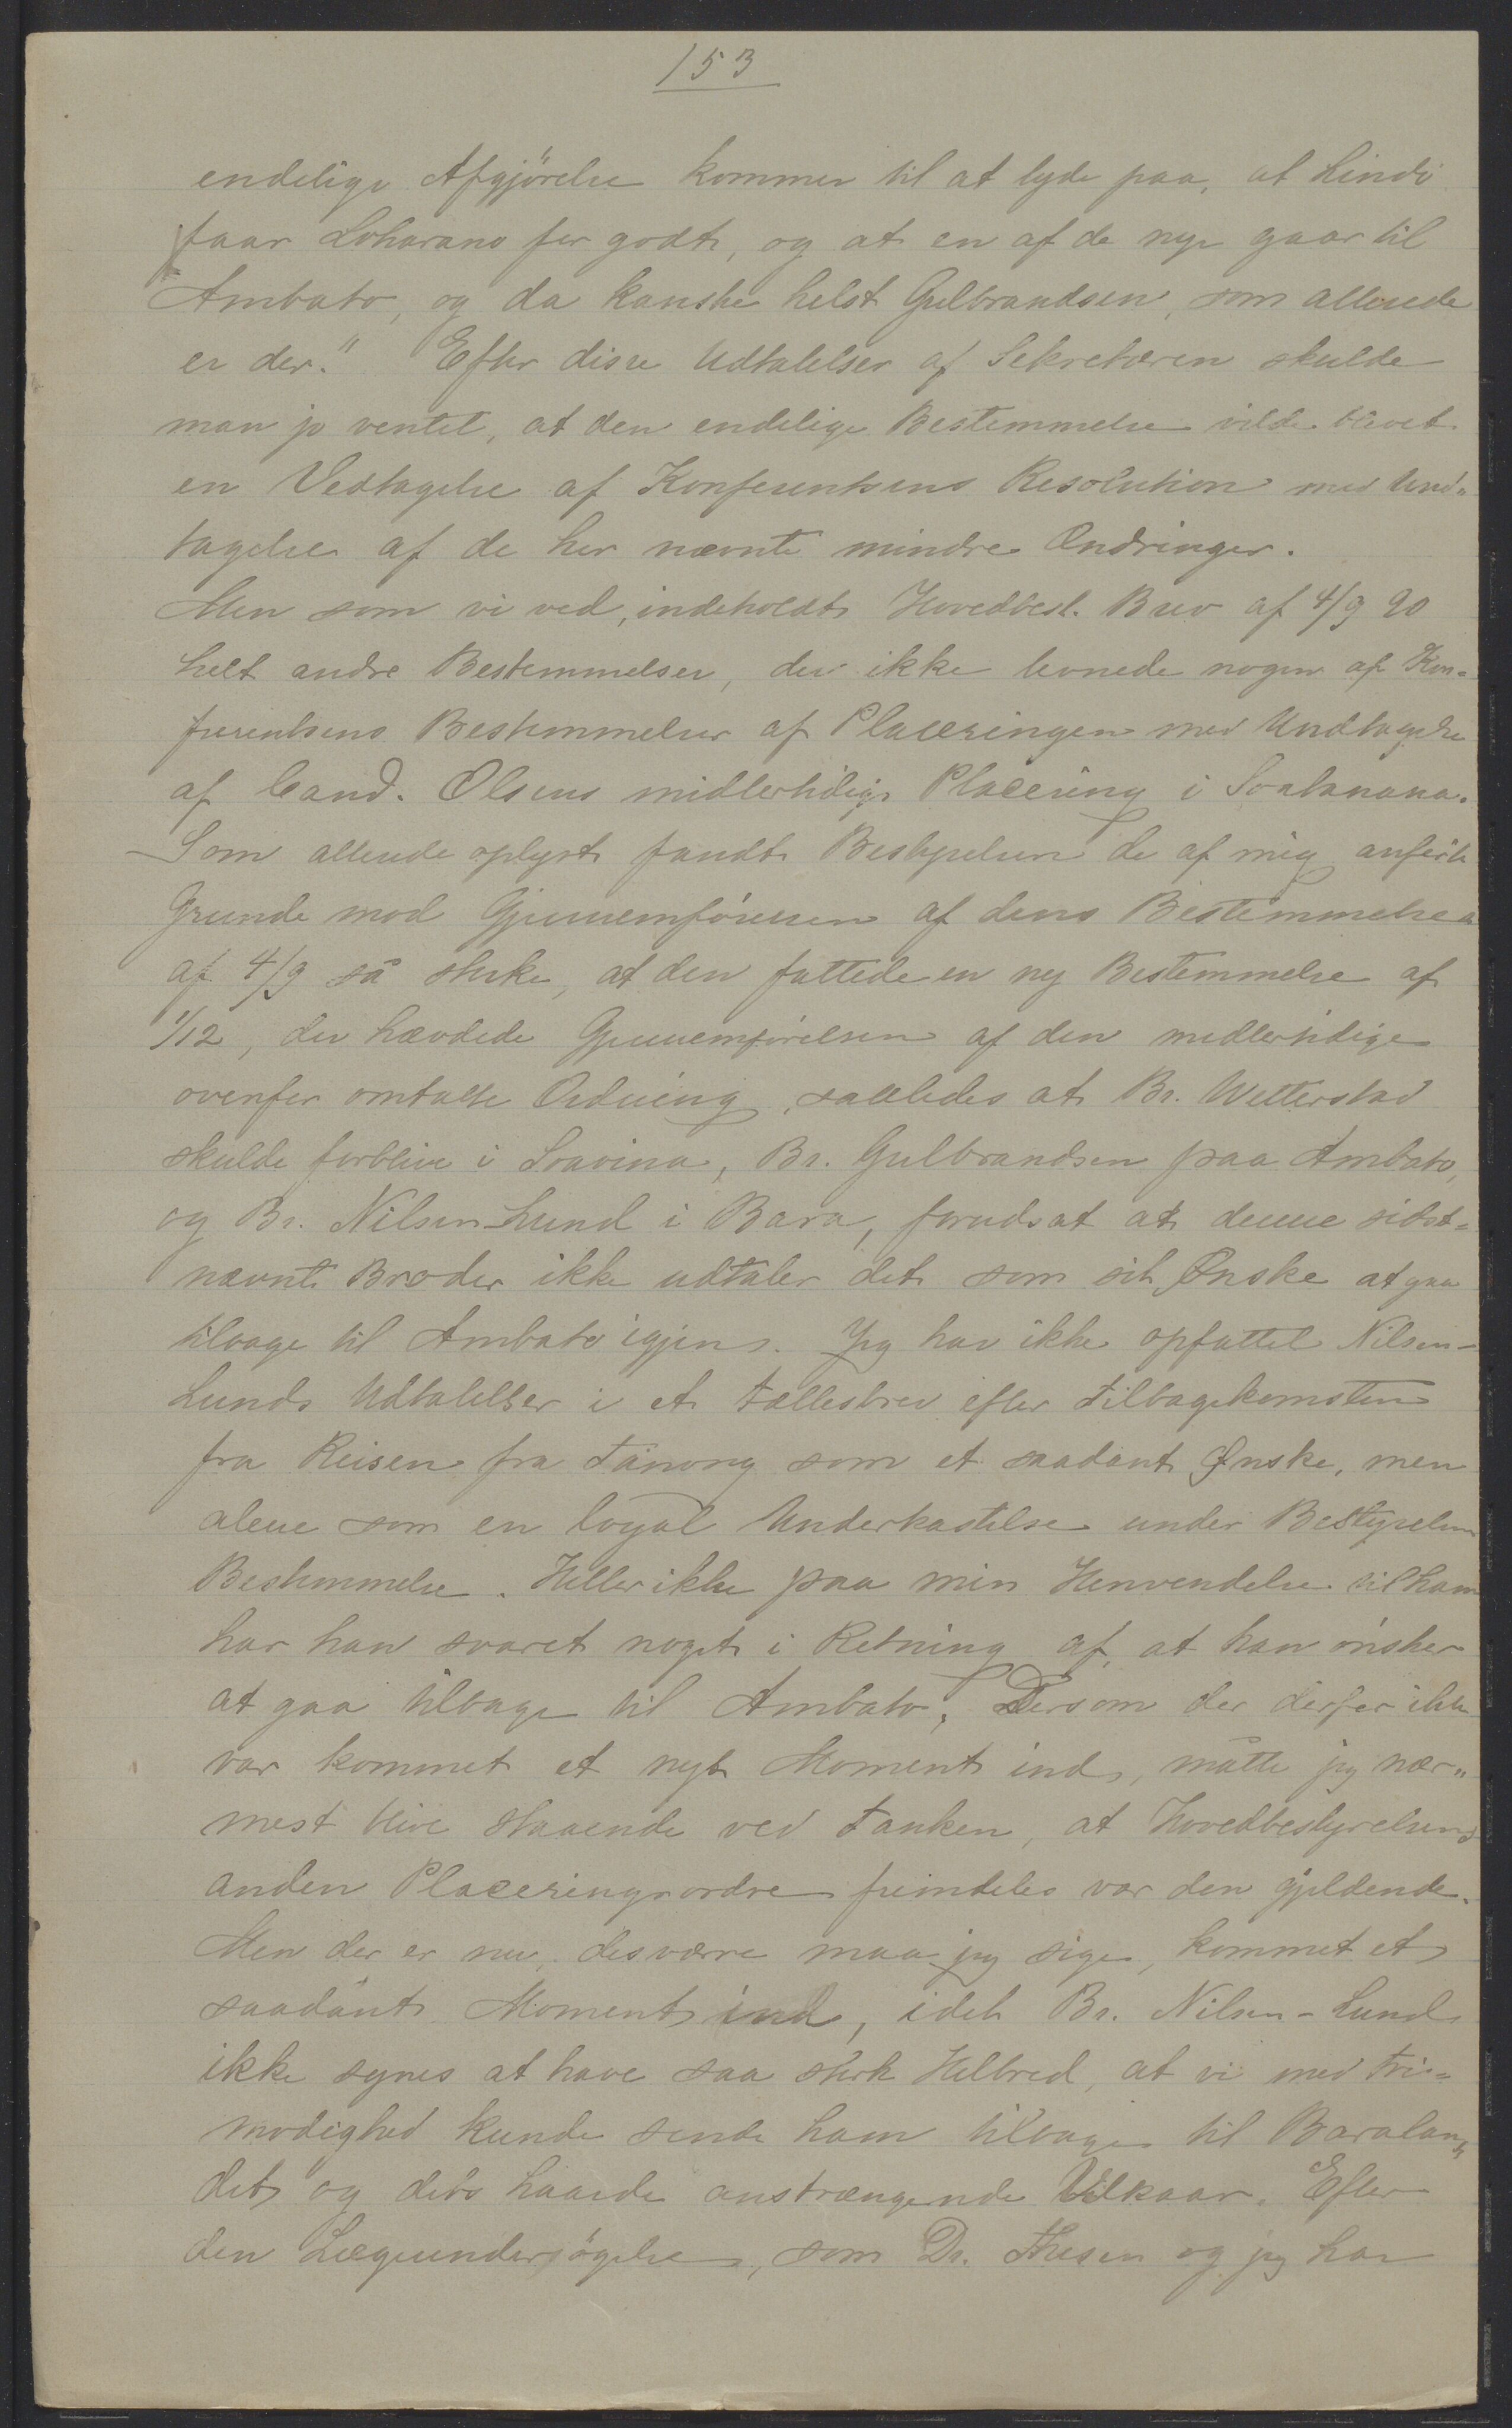 153
endelige Afgjörelse kommer til at lyde paa, at Lindö
faar Loharano for godt, og at en af de nye gaar til
Ambato, og da kanske helst Gulbrandsen, som allerede
er der." Efter disse Udtalelser af Sekretæren skulde
man jo ventet, at den endelige Bestemmelse vilde blevet
en Vedtagelse af Konferentsens Resolution med Und"
tagelse af de her nævnte mindre Ændringer.
Men som vi ved, indeholdt Hovedbest. Brev af 4/9 90
helt andre Bestemmelser, der ikke levnede nogen af Kon=
ferentsens Bestemmelser af Placeringen med Undtagelse
af Cand. Olsens midlertidige Placering i Soatanana.
Som allerede oplyst fandt Bestyrelsen de af mig anförte
Grunde mod Gjennemförelsen af dens Bestemmelse
af 4/9 så sterke, at den fattede en ny Bestemmelse af
1/12, der hævdede Gjennemförelsen af den midlertidige
ovenfor omtalte Ordning, saaledes at Br. Wetterstad
skulde forblive i Soavina, Br. Gulbrandsen paa Ambato,
og Br. Nilsen-Lund i Bara, forudsat at denne sidst=
nævnte Broder ikke udtaler det som sit Ønske at gaa
tilbage til Ambato igjen. Jeg har ikke opfattet Nilsen-
Lunds Udtalelser i et Fællesbrev efter Tilbagekomsten
fra Reisen fra Fanong som et saadant Ønske, men
alene som en loyal Underkastelse under Bestyrelsens
Bestemmelse. Heller ikke paa min Henvendelse til ham
har han svaret noget i Retning af, at han önsker
at gaa tilbage til Ambato. Dersom der derfor ikke
var kommet et nyt Moment ind, måtte jeg nær"
mest blive staaende ved Tanken, at Hovedbestyrelsens
anden Placeringsordre fremdeles var den gjeldende.
Men der er nu, desværre maa jeg sige, kommet et
saadant Moment ind, idet Br. Nilsen-Lund
ikke synes at have saa sterk Helbred, at vi med Fri=
modighed kunde sende ham tilbage til Baralan"
det og dets haarde anstrængende Vilkaar. Efter
den Lægeundersögelse, som Dr. Thesen og jeg har